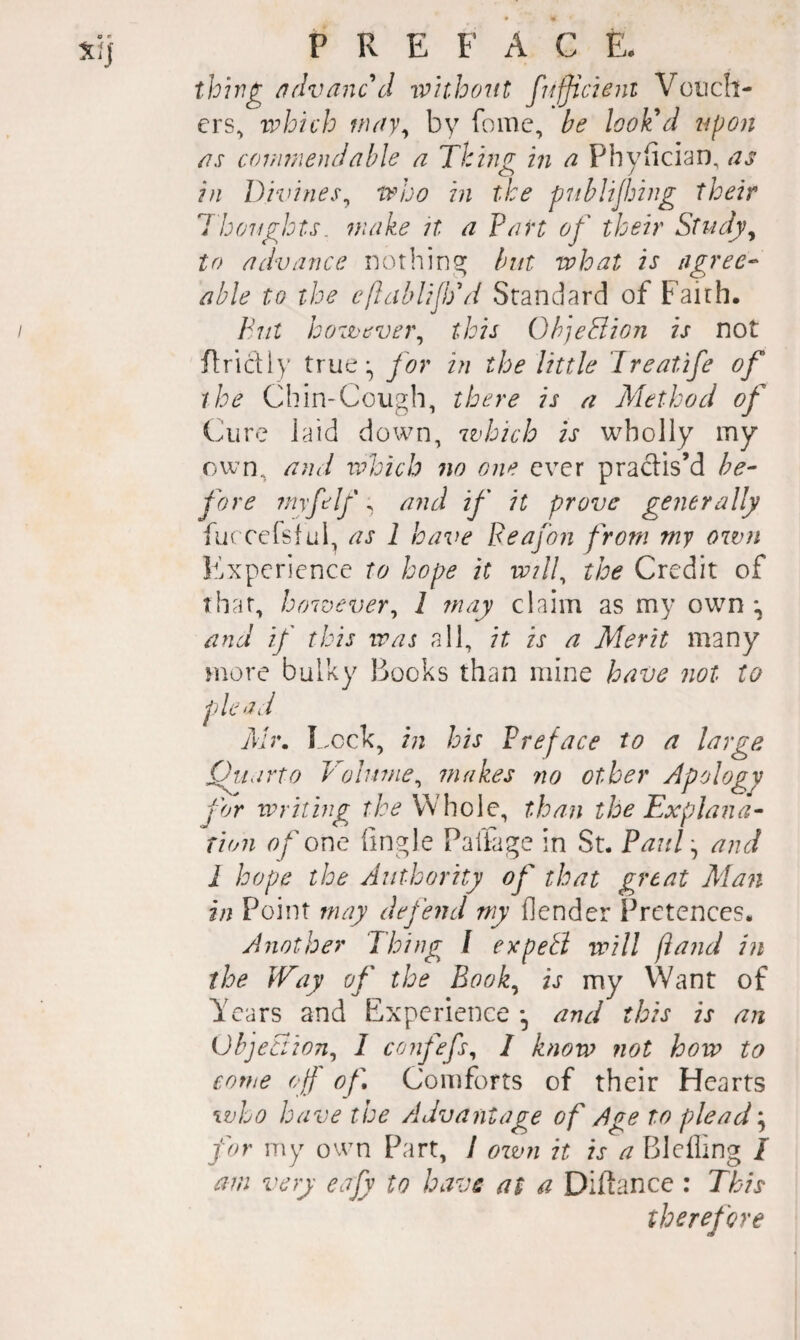 xij
PREFACE.
thing advanc'd without ſufficient Vouch-
ers, which may, by ſome, be look'd upon
as commendable a Thing in a Phyſician, as
in Divines, who in the publiſhing their
Thoughts. make it a Part of their Study,
to advance nothing but what is agree-
able to the eſtabliſh'd Standard of Faith.
But however, this Objection is not
ſtrictly true; for in the little Treatiſe of
the Chin-Cough, there is a Method of
Cure laid down, which is wholly my
own, and which no one ever practis'd be-
fore myſelf; and if it prove generally
ſucceſsful, as I have Reaſon from my own
Experience to hope it will, the Credit of
that, however, I may claim as my own;
and if this was all, it is a Merit many
more bulky Books than mine have not to
plead
Mr. Lock, in his Preface to a large
Quarto Volume, makes no other Apology
for writing the Whole, than the Explana-
tion of one ſingle Paſſage in St. Paul; and
I hope the Authority of that great Man
in Point may defend my ſlender Pretences.
Another Thing I expect will ſtand in
the Way of the Book, is my Want of
Years and Experience; and this is an
Objection, I confeſs, I know not how to
come off of. Comforts of their Hearts
who have the Advantage of Age to plead;
for my own Part, I own it is a Bleſſing I
am very eaſy to have at a Diſtance : This
therefore